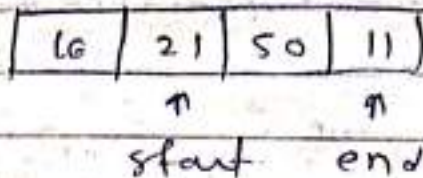 16 21 50 11
start end